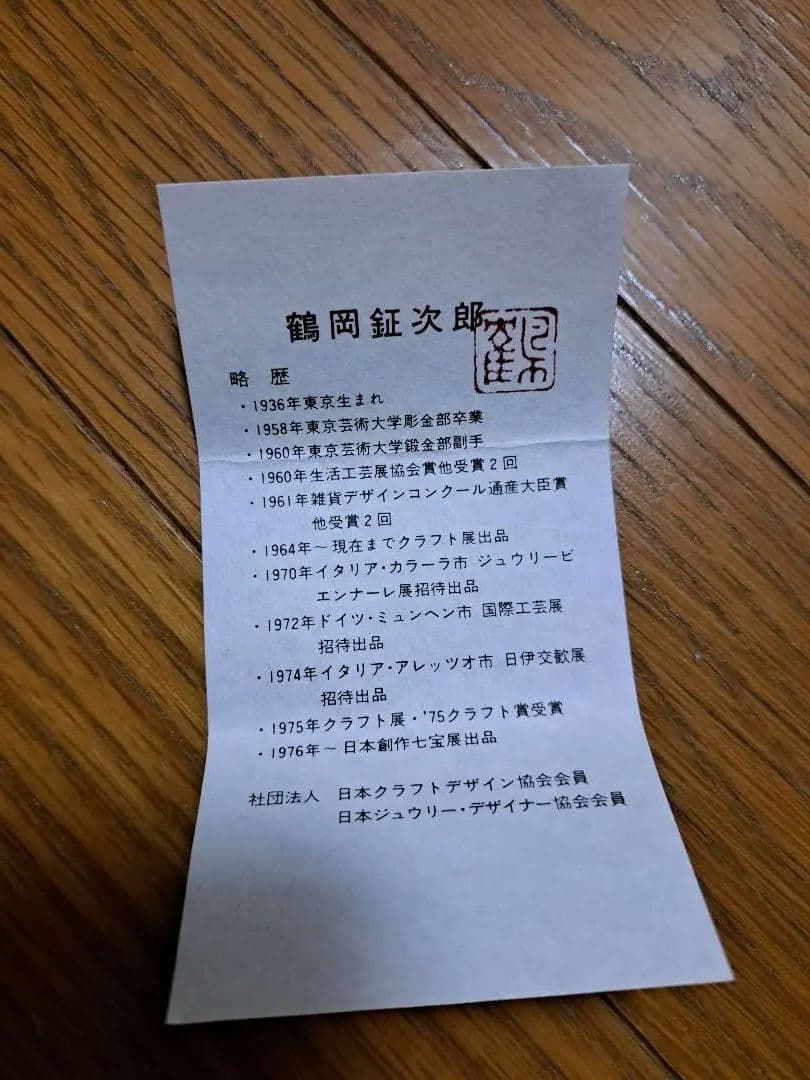 鶴岡鉦次郎
略 歴
・1936年東京生まれ
・1958年東京芸術大学彫金部卒業
・1960年東京芸術大学鍛金部副手
・1960年生活工芸展協会賞他受賞2回
・1961年雑貨デザインコンクール通産大臣賞
他受賞2回
・1964年～現在までクラフト展出品
・1970年イタリア・カラーラ市 ジュウリービ
エンナーレ展招待出品
・1972年ドイツ・ミュンヘン市 国際工芸展
招待出品
・1974年イタリア・アレッツオ市 日伊交歓展
招待出品
・1975年クラフト展・'75クラフト賞受賞
・1976年～日本創作七宝展出品
社団法人 日本クラフトデザイン協会会員
日本ジュウリー・デザイナー協会会員